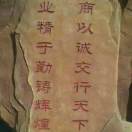 商以诚交行天下
业精于勤铸辉煌